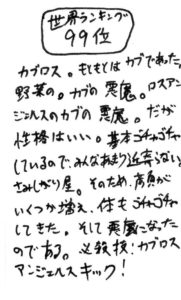 世界ランキング
99位
カブロス。もともとはカブであった。
野菜の。カブの悪魔。ロスアン
ジェルスのカブの悪魔。だが
性格はいい。基本ゴチャゴチャ
しているので、みんなあまり近寄らない。
さみしがり屋。そのため、肩が
いくつか増え、体もゴチャゴチャ
してきた。そして悪魔になった
のである。必殺技！カブロス
アンジェルスキック！